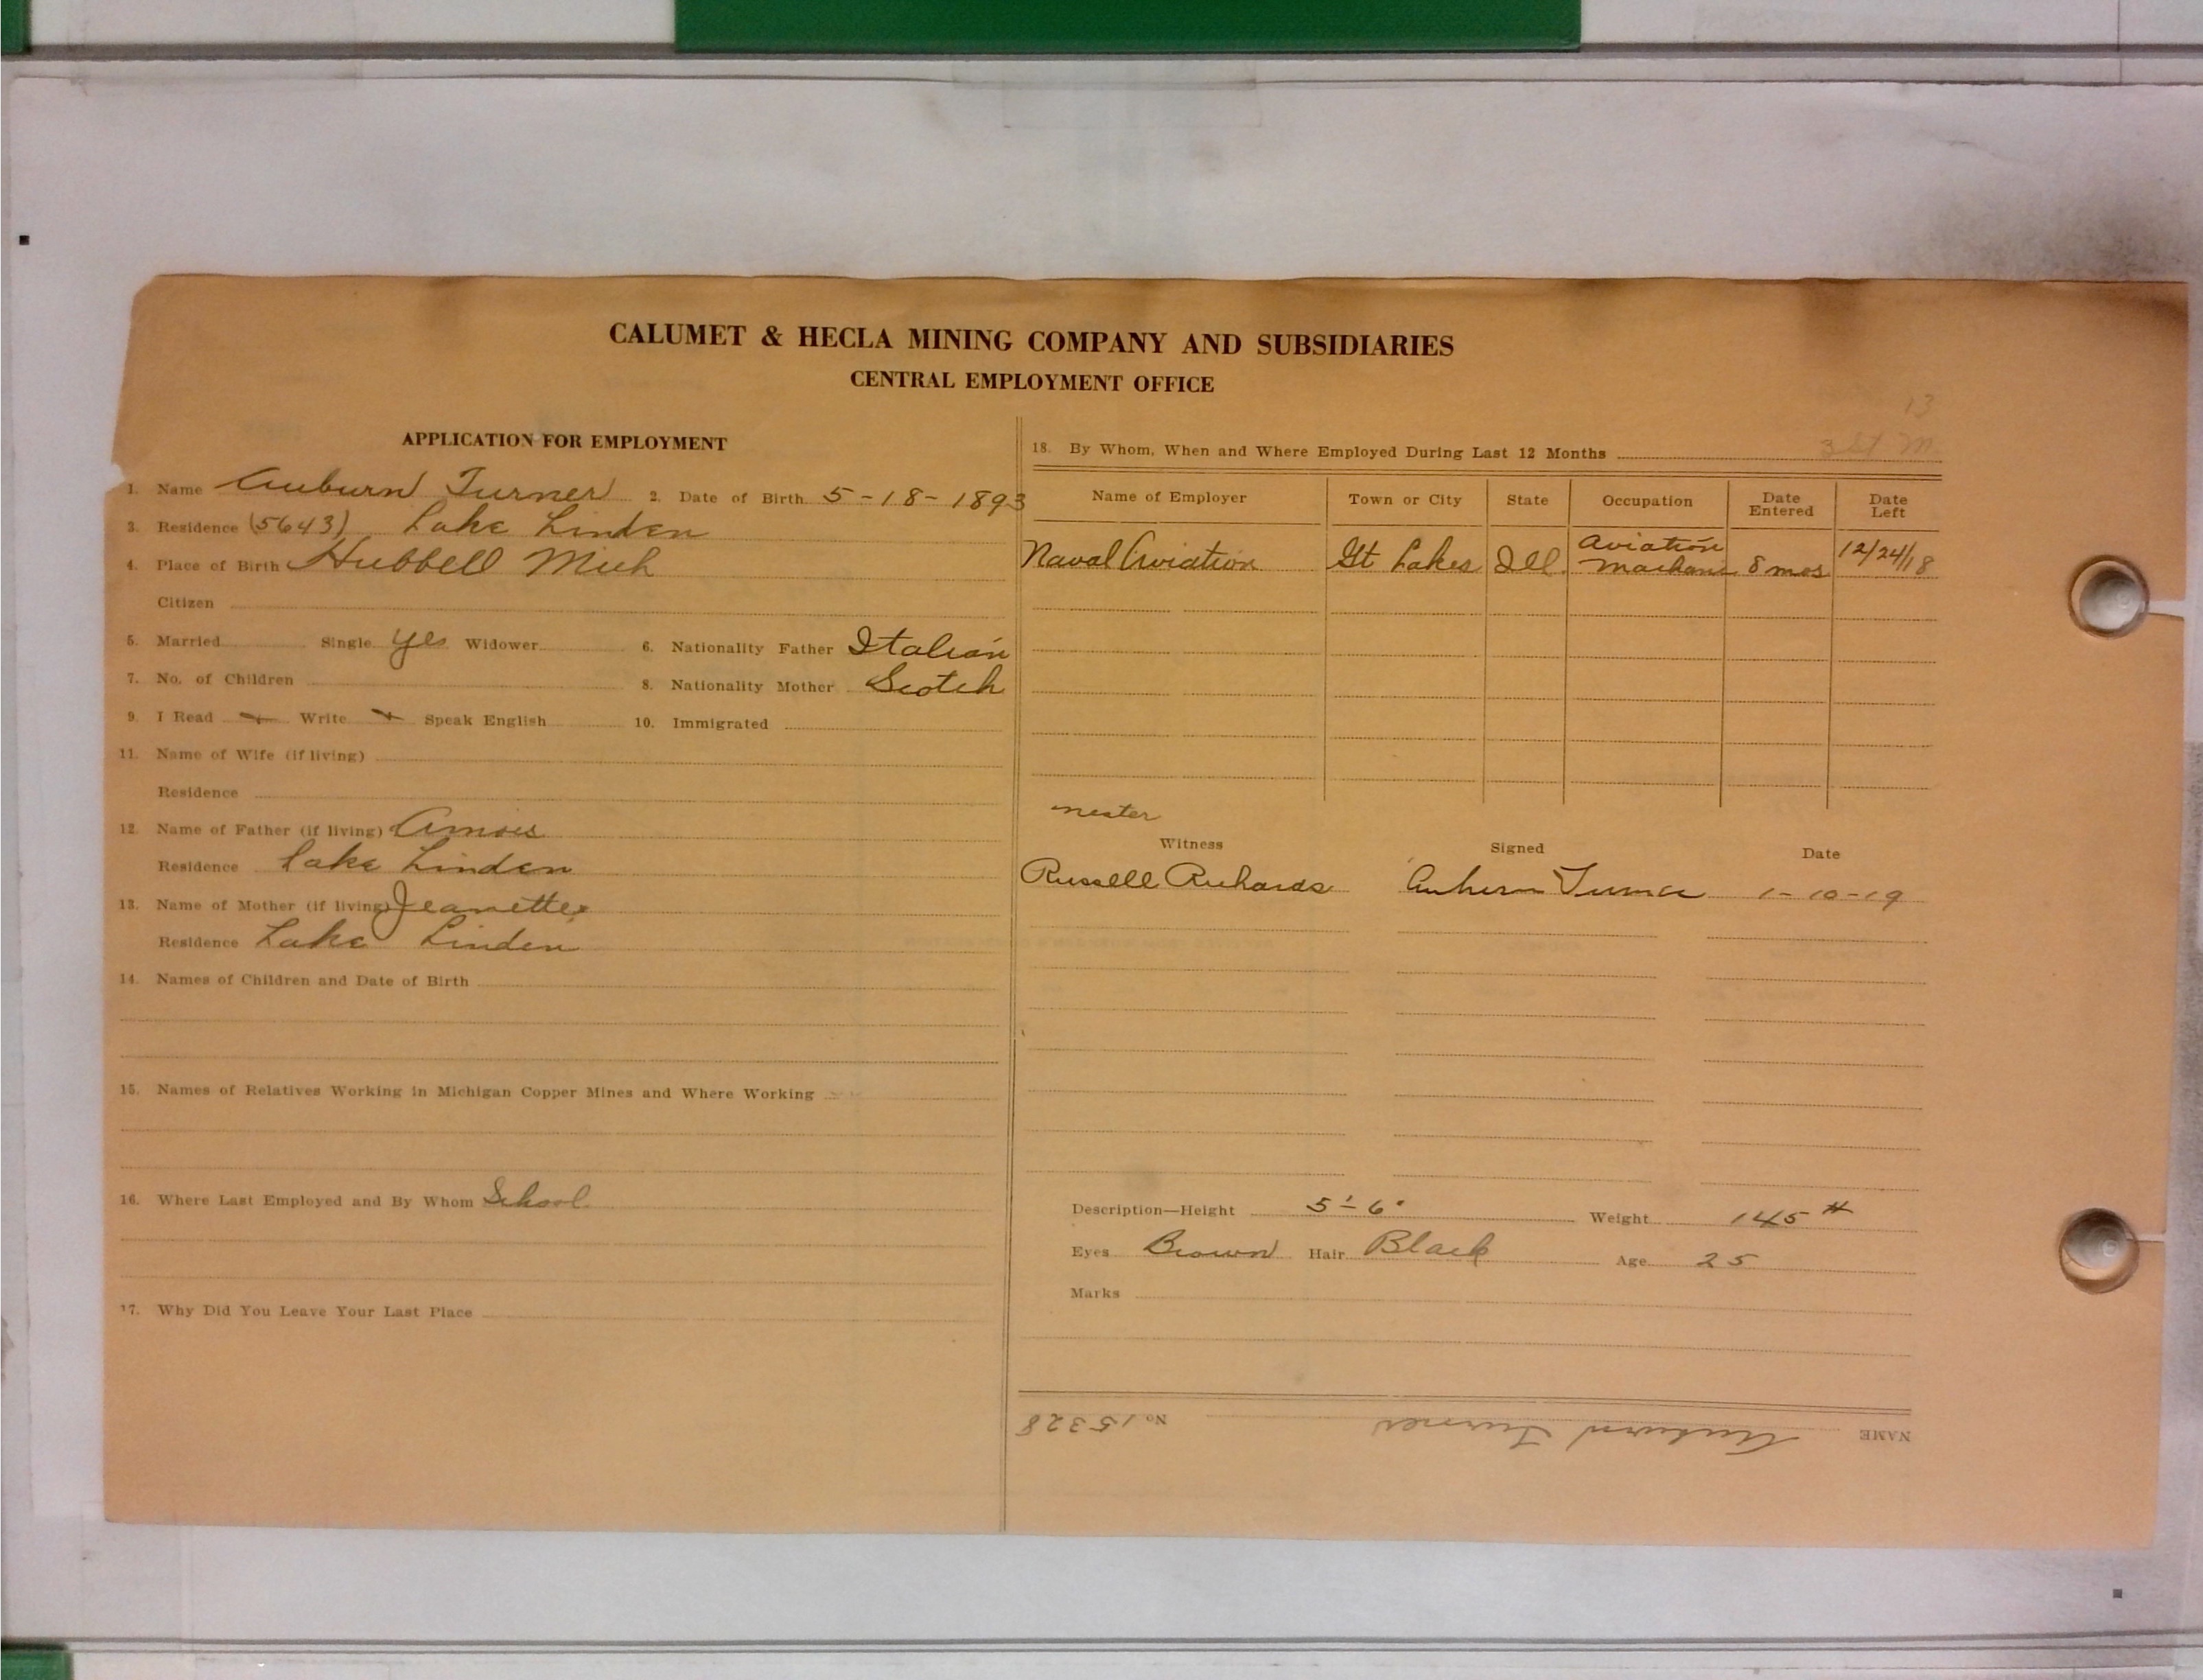 CALUMET & HECLA MINING COMPANY AND SUBSIDIARIES
CENTRAL EMPLOYMENT OFFICE
APPLICATION FOR EMPLOYMENT
1. Name Auburn Turner 2. Date of Birth 5-18-1893
3. Residence (5643) Lake Linden
4. Place of Birth Hubbell Mich
Citizen
5. Married Single yes Widower 6. Nationality Father Italian
7. No. of Children 8. Nationality Mother Scotch
9. I Read Write Speak English 10. Immigrated
11. Name of Wife (if living)
Residence
12. Name of Father (if living)
Residence Lake Linden
13. Name of Mother (if living) Jeanette
Residence Lake Linden
14. Names of Children and Date of Birth
15. Names of Relatives Working in Michigan Copper Mines and Where Working
16. Where Last Employed and By Whom School
17. Why Did You Leave Your Last Place
13
3 St M.
18. By Whom, When and Where Employed During Last 12 Months
Name of Employer Town or City State Occupation Date Entered Date Left
Naval Aviation Gt Lakes Ill. Aviation 8 mos 12/24/18
nester
Witness Signed Date
Russell Richards Auburn Turner 1-10-19
Description—Height 5'-6" Weight 145 #
Eyes Brown Hair Black Age 25
Marks
NAME Auburn Turner No. 15328